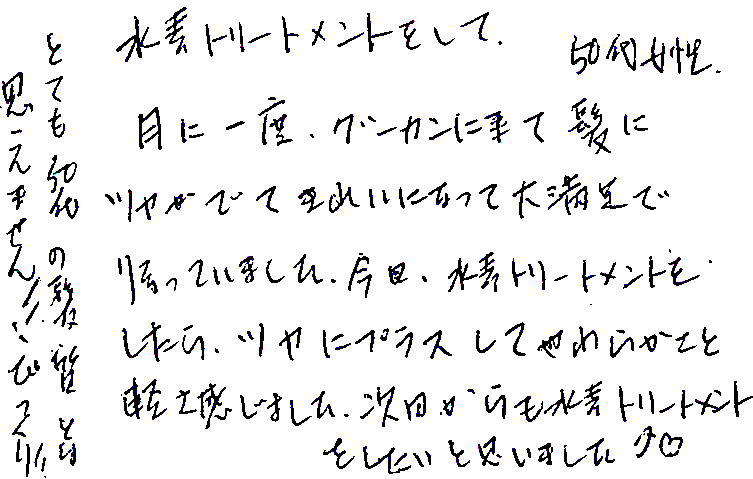 水素トリートメントをして、
50代女性.
月に一度、グーカンに来て髪に
ツヤがでてきれいになって大満足で
帰っていました。今日、水素トリートメントを
したら、ツヤにプラスしてやわらかさと
軽さ感じました。次回からも水素トリートメント
をしたいと思いました♪♡
とても50代の髪質とは
思えません!!びっくり!!